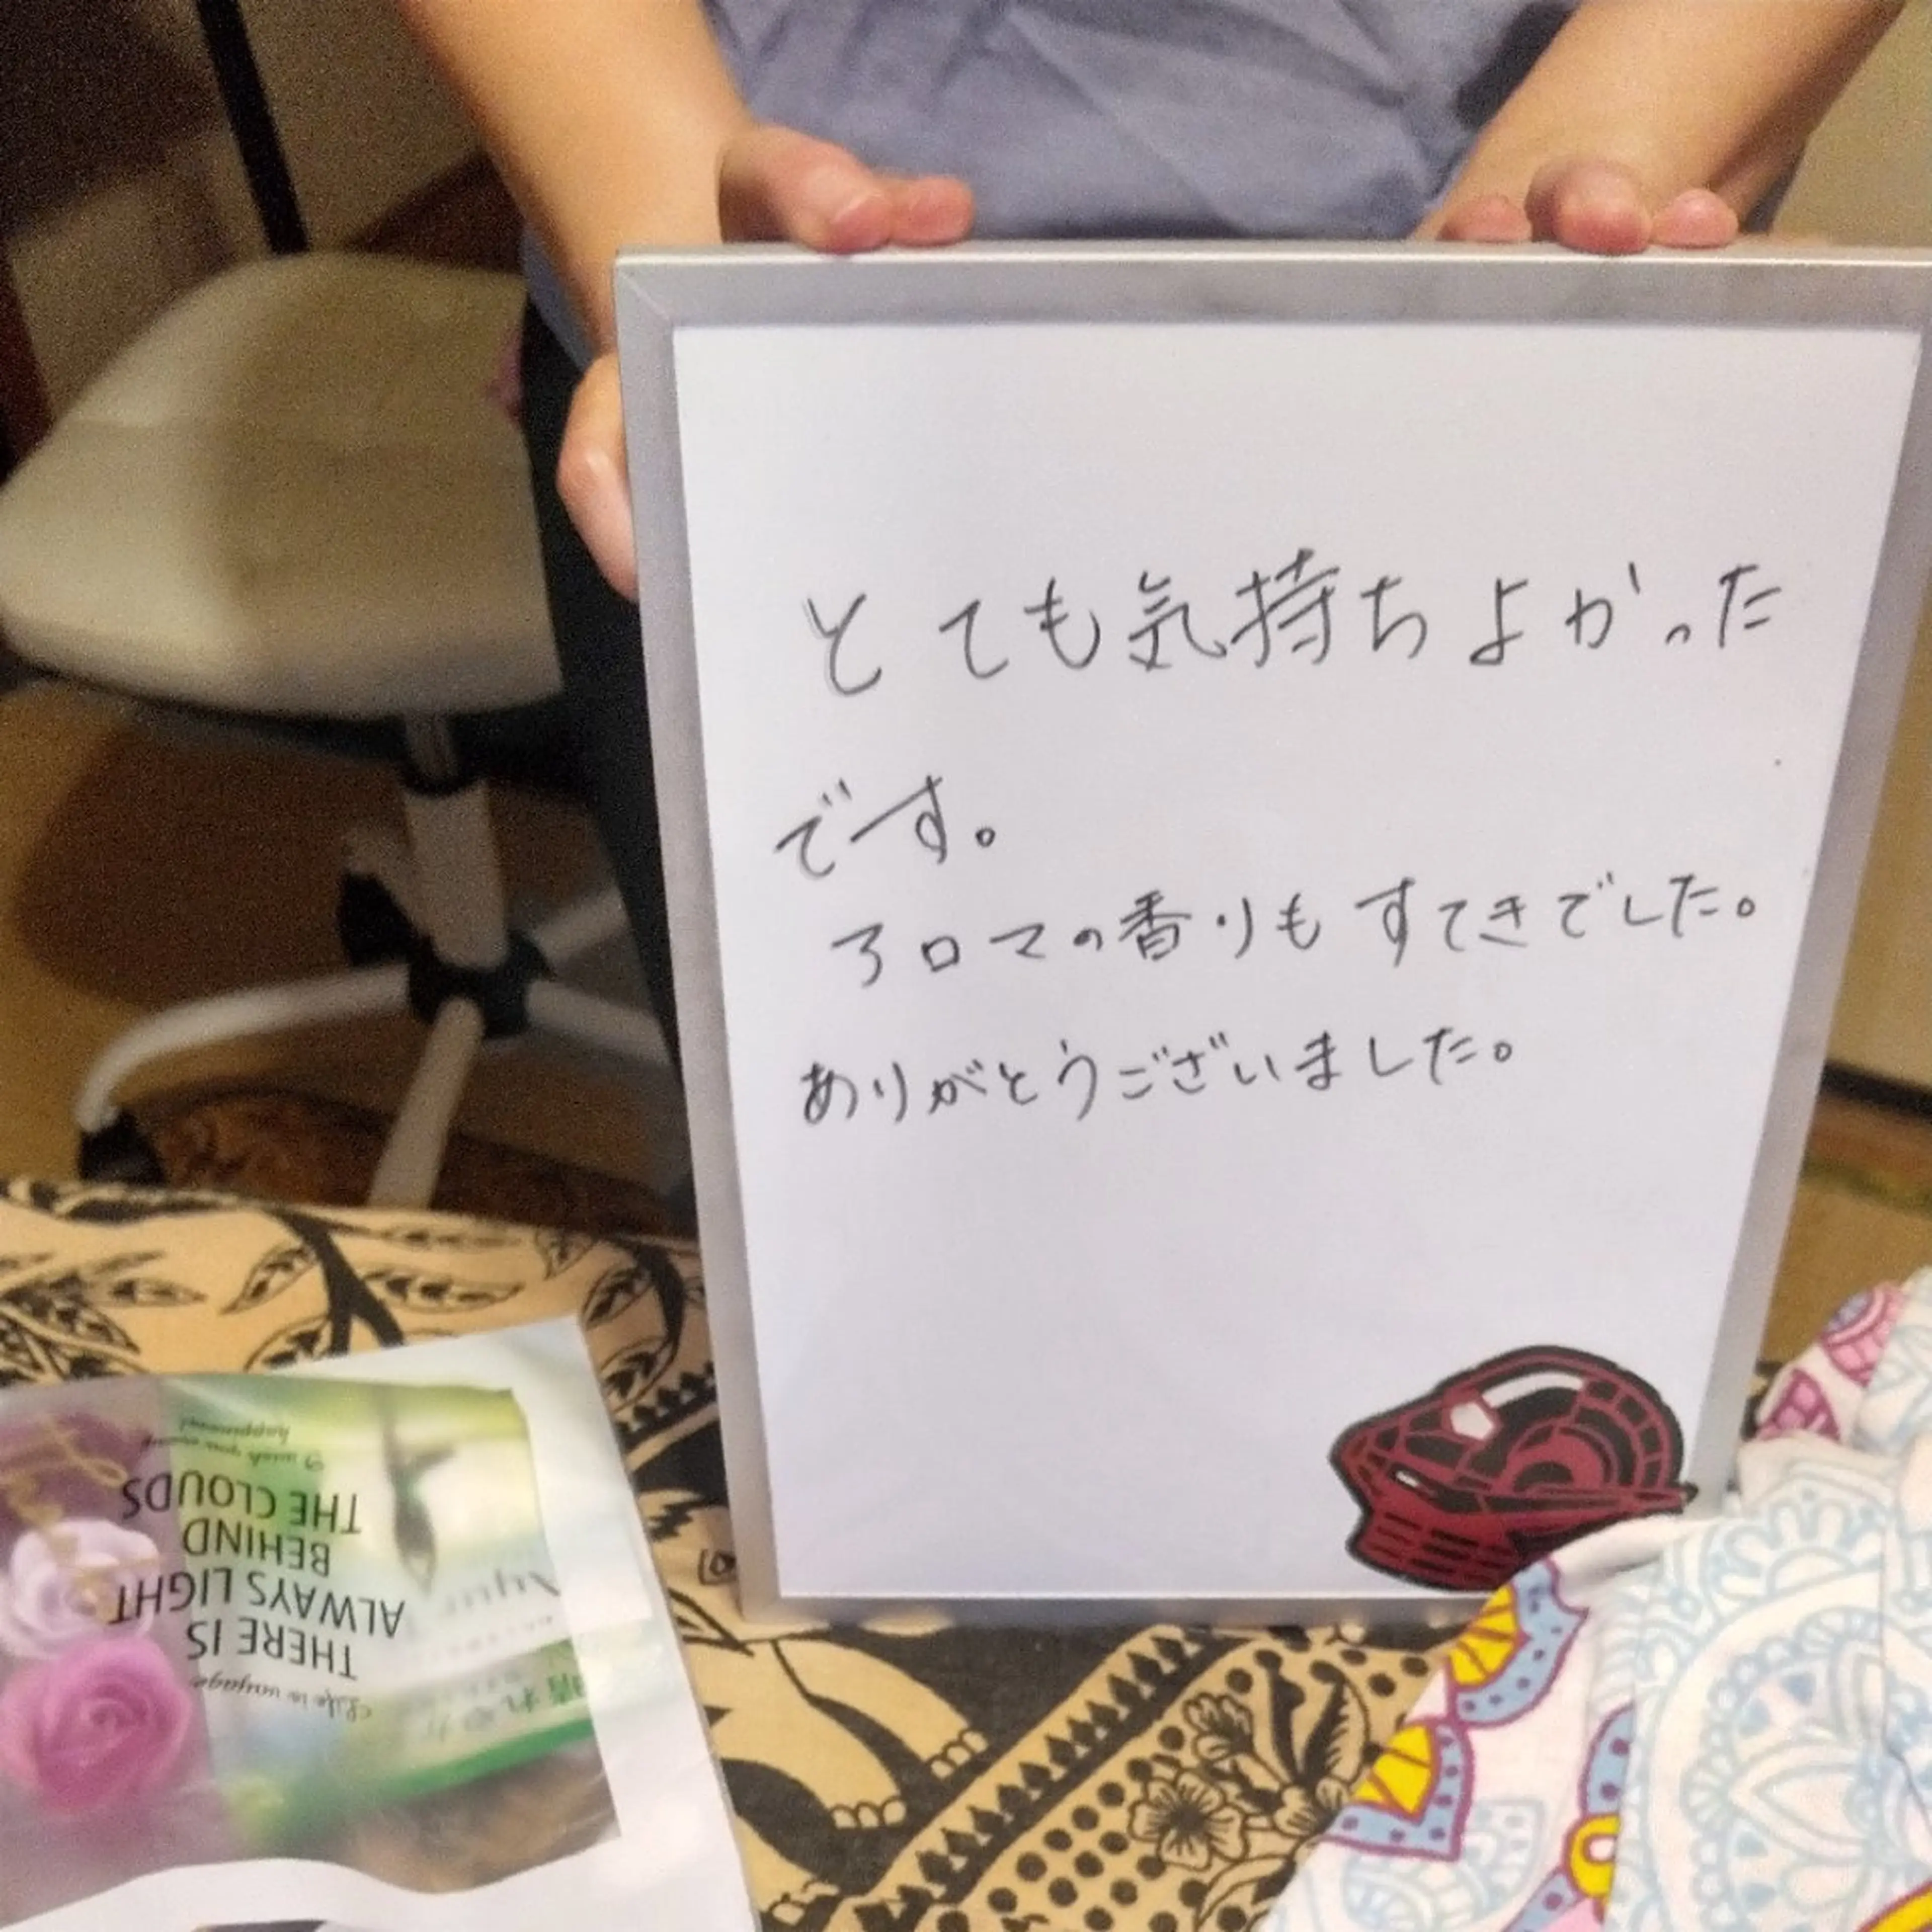 とても気持ちよかった
です。
アロマの香りもすてきでした。
ありがとうございました。
Life is voyage
THERE IS
ALWAYS LIGHT
BEHIND
THE CLOUDS
I wish you many
happiness!
晴れやか